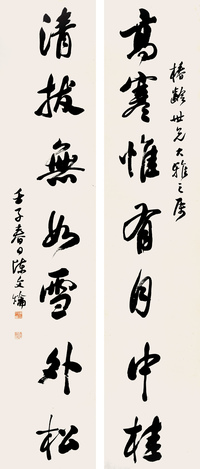 椿齡世兄大雅之屬
高寒惟有月中桂
清拔無如雪外松
壬子春日文